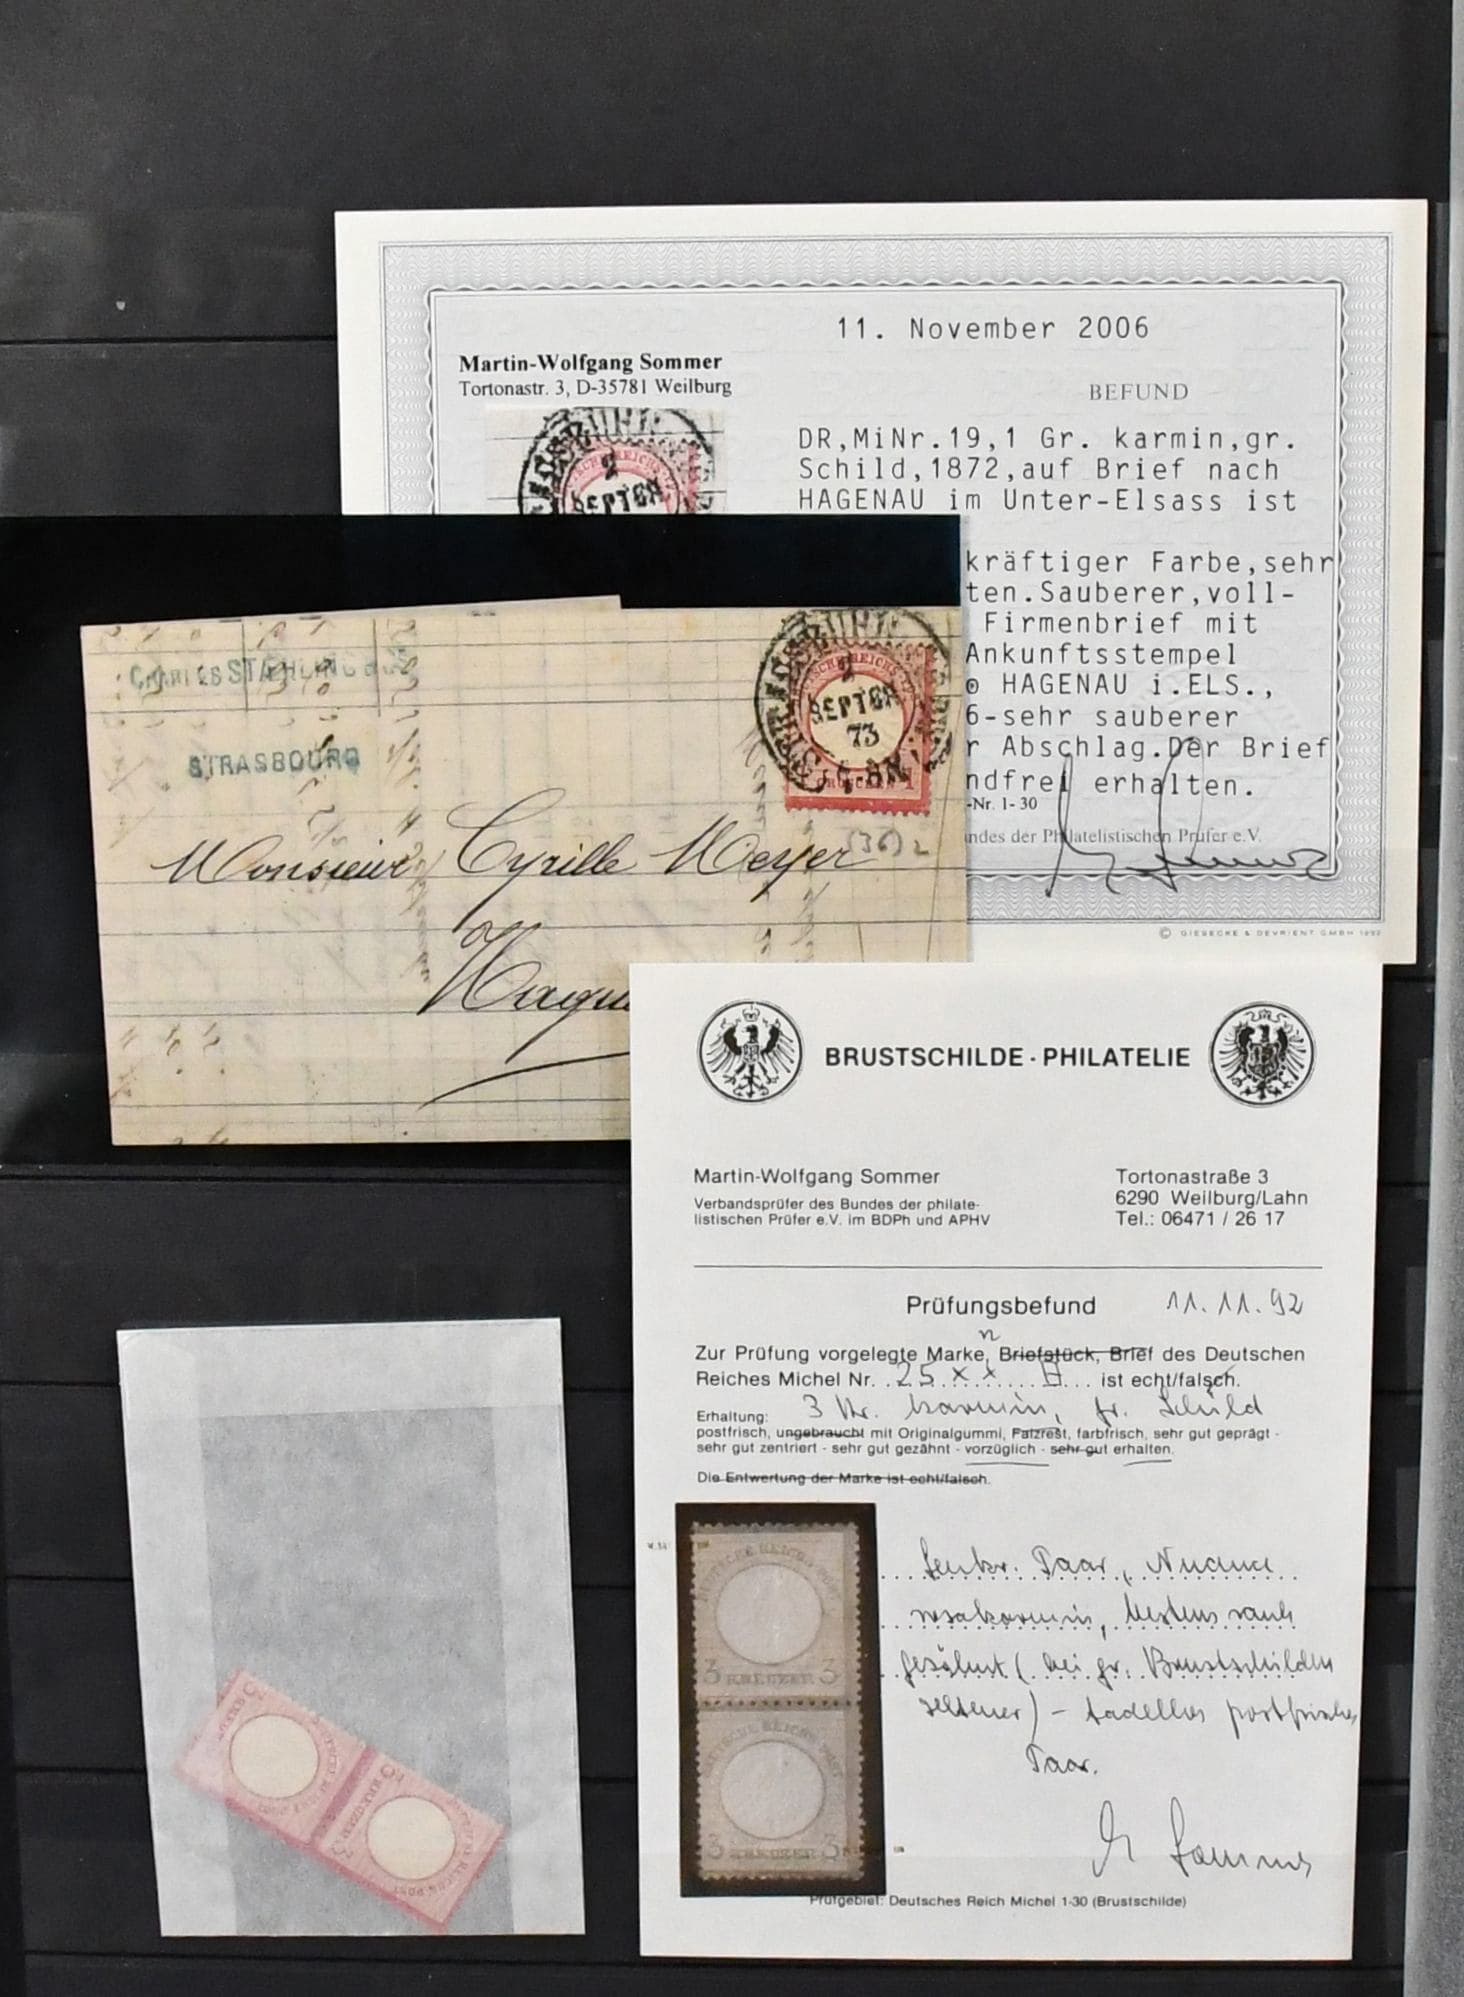 11. November 2006
Martin-Wolfgang Sommer
Tortonastr. 3, D-35781 Weilburg
BEFUND
DR,MiNr.19,1 Gr. karmin,gr.
Schild,1872,auf Brief nach
HAGENAU im Unter-Elsass ist
kräftiger Farbe,sehr
ten.Sauberer,voll-
Firmenbrief mit
Ankunftsstempel
HAGENAU i.ELS.,
6-sehr sauberer
r Abschlag.Der Brief
ndfrei erhalten.
-Nr. 1-30
ndes der Philatelistischen Prüfer e.V.
© GIESECKE & DEVRIENT GMBH 1992
2
SEPTBR
CHARLES STÆHLING
STRASBOURG
2
SEPTBR
73
GROSCHEN 1
(36) 2
Monsieur Cyrille Meyer
Hague
BRUSTSCHILDE · PHILATELIE
Martin-Wolfgang Sommer
Verbandsprüfer des Bundes der philate-
listischen Prüfer e.V. im BDPh und APHV
Tortonastraße 3
6290 Weilburg/Lahn
Tel.: 06471 / 26 17
Prüfungsbefund 11.11.92
n
Zur Prüfung vorgelegte Marke, Briefstück, Brief des Deutschen
Reiches Michel Nr. 25 x x ist echt/falsch.
Erhaltung: 3 Kr. karmin, gr. Schild
postfrisch, ungebraucht mit Originalgummi, Falzrest, farbfrisch, sehr gut geprägt -
sehr gut zentriert - sehr gut gezähnt - vorzüglich - sehr gut erhalten.
Die Entwertung der Marke ist echt/falsch.
Senkr. Paar, Nuance
rosakarmin, bestens rauh
gezähnt (bei gr. Brustschilden
seltener) - tadellos postfrisches
Paar.
M Sommer
DEUTSCHE REICHS POST
3 KREUZER 3
DEUTSCHE REICHS POST
3 KREUZER 3
Prüfgebiet: Deutsches Reich Michel 1-30 (Brustschilde)
3 KREUZER 3